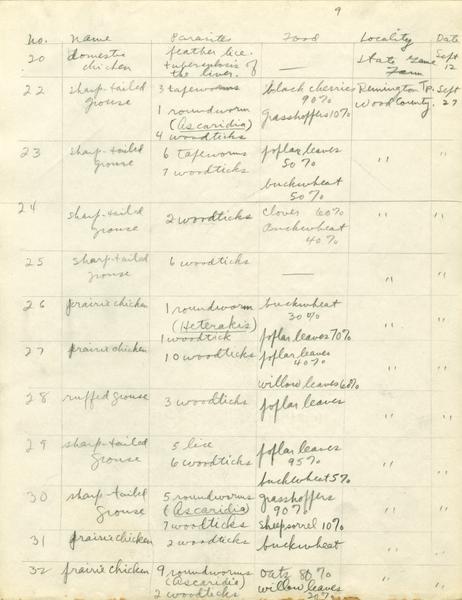 9
No. Name Parasites Food Locality Date
20 domestic chicken feather lice. tuberculosis of the liver. — State Game Farm Sept 12
22 sharp-tailed grouse 3 tapeworms 1 roundworm (Ascaridia) 4 woodticks black cherries 90% grasshoppers 10% Remington Tp. Wood County. Sept 27
23 sharp-tailed grouse 6 tapeworms 7 woodticks poplar leaves 50% buckwheat 50% " "
24 sharp-tailed grouse 2 woodticks clover 60% Buckwheat 40% " "
25 sharp-tailed grouse 6 woodticks — " "
26 prairie chicken 1 roundworm (Heterakis) 1 woodtick buckwheat 30% poplar leaves 70% " "
27 prairie chicken 10 woodticks poplar leaves 40% willow leaves 60% " "
28 ruffed grouse 3 woodticks poplar leaves " "
29 sharp-tailed grouse 5 lice 6 woodticks poplar leaves 95% buckwheat 5% " "
30 sharp-tailed grouse 5 roundworms (Ascaridia) 7 woodticks grasshoppers 90% sheepsorrel 10% " "
31 prairie chicken 2 woodticks buckwheat " "
32 prairie chicken 9 roundworms (Ascaridia) 2 woodticks oats 80% willow leaves 20% " "